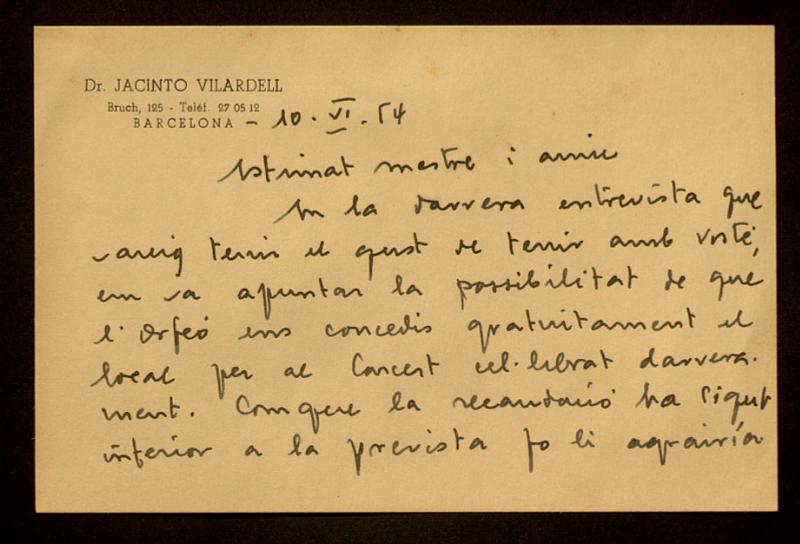 Dr. JACINTO VILARDELL
Bruch, 125 - Teléf. 27 05 12
BARCELONA - 10. VI. 54
Estimat mestre i amic
En la darrera entrevista que
vareig tenir el gust de tenir amb vosté,
em va apuntar la possibilitat de que
l'Orfeó ens concedis gratuitament el
local per al Concert cel·lebrat darrera-
ment. Com que la recaudació ha sigut
inferior a la prevista jo li agrairía